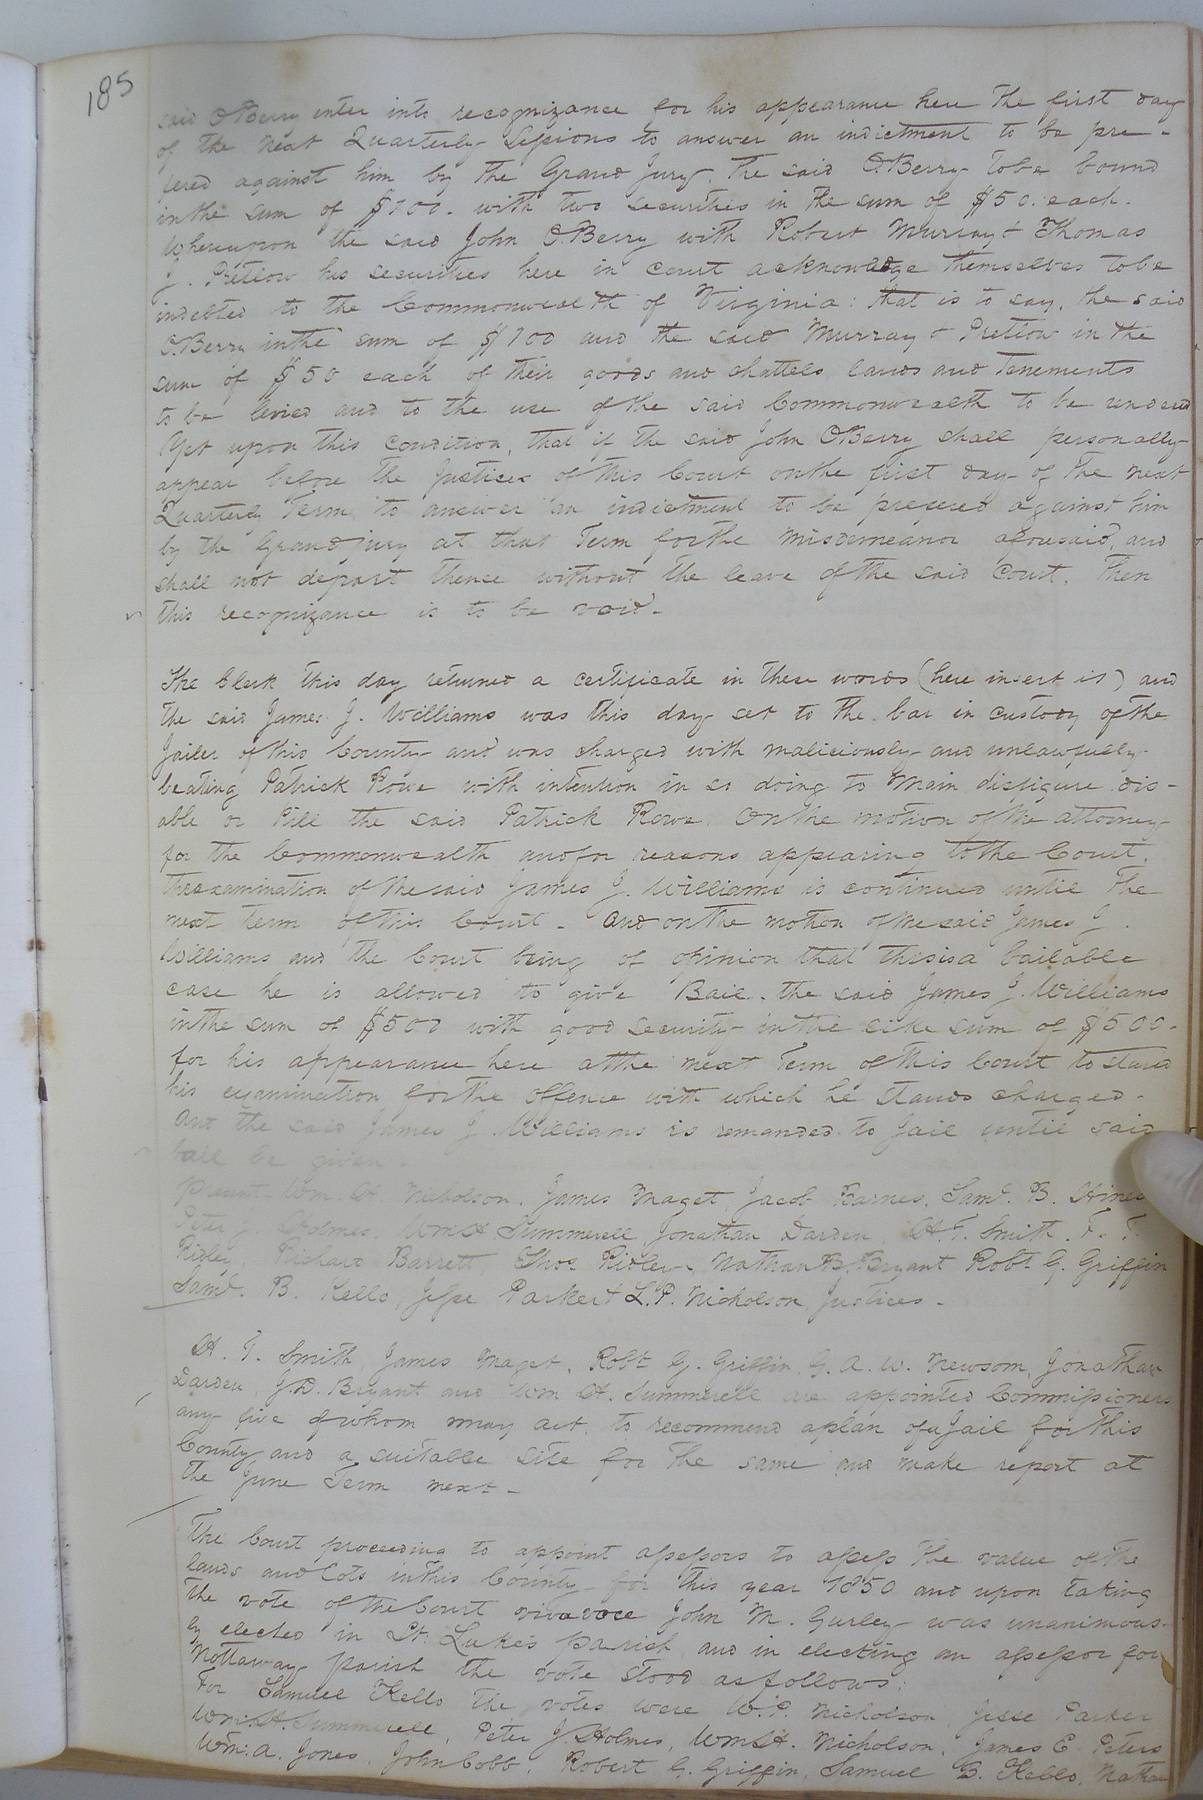 185
said O.Berry enter into recognizance for his appearance here the first day
of the next Quarterly Sessions to answer an indictment to be pre-
fered against him by the Grand Jury. The said O.Berry to be bound
in the sum of $100. with two securities in the sum of $50. each.
Whereupon the said John O.Berry with Robert Murray & Thomas
J. Pretlow his securities here in court acknowledge themselves to be
indebted to the Commonwealth of Virginia: that is to say, the said
O.Berry in the sum of $100 and the said Murray & Pretlow in the
sum of $50 each of their goods and chattels lands and tenements
to be levied and to the use of the said Commonwealth to be
Yet upon this condition, that if the said John O.Berry shall personally
appear before the Justices of this Court on the first day of the next
Quarterly Term to answer an indictment to be prefered against him
by the Grand jury at that Term for the misdemeanor aforesaid, and
shall not depart thence without the leave of the said Court. Then
this recognizance is to be void -
The Clerk this day returned a certificate in these words (here insert it) and
the said James J. Williams was this day set to the bar in custody of the
Jailer of this County and was charged with maliciously and unlawfully
beating Patrick Rowe with intention in so doing to maim disfigure dis-
able or kill the said Patrick Rowe. On the motion of the attorney
for the Commonwealth and for reasons appearing to the Court,
the examination of the said James J. Williams is continued until the
next term of this Court - And on the motion of the said James J.
Williams and the Court being of opinion that this is a bailable
case he is allowed to give Bail. the said James J. Williams
in the sum of $500 with good security in the like sum of $500-
for his appearance here at the next Term of this Court to stand
his examination for the offence with which he stands charged -
And the said James J. Williams is remanded to Jail until said
bail be given -
Present Wm. H. Nicholson. James Maget, Jacob Barnes, Saml. B. Hines
Peter J. Holmes, Wm H Summerell Jonathan Darden, H.T. Smith. F. T.
Ridley, Richard Barrett, Thos. Ridley, Nathan B. Bryant Robt. G. Griffin
Saml. B. Kello, Jesse Parker & L.P. Nicholson Justices -
H. T. Smith, James Maget, Robt G. Griffin, G. A. W. Newsom, Jonathan
Darden, J.D. Bryant and Wm H. Summerell are appointed Commissioners
any five of whom may act, to recommend a plan of a Jail for this
County and a suitable site for the same and make report at
the June Term next -
The Court proceeding to appoint assessors to assess the value of the
lands and Lots in this County for this year 1850 and upon taking
the vote of the Court viva voce John M. Gurley was unanimous-
ly elected in St. Luke's parish and in electing an assessor for
Nottaway parish the vote stood as follows:
For Samuel Kello the votes were W.P. Nicholson, Jesse Parker
Wm.H.Summerell, Peter J. Holmes, Wm H. Nicholson, James E. Peters
Wm. A. Jones, John Cobb, Robert G. Griffin, Samuel B. Kello, Nathan